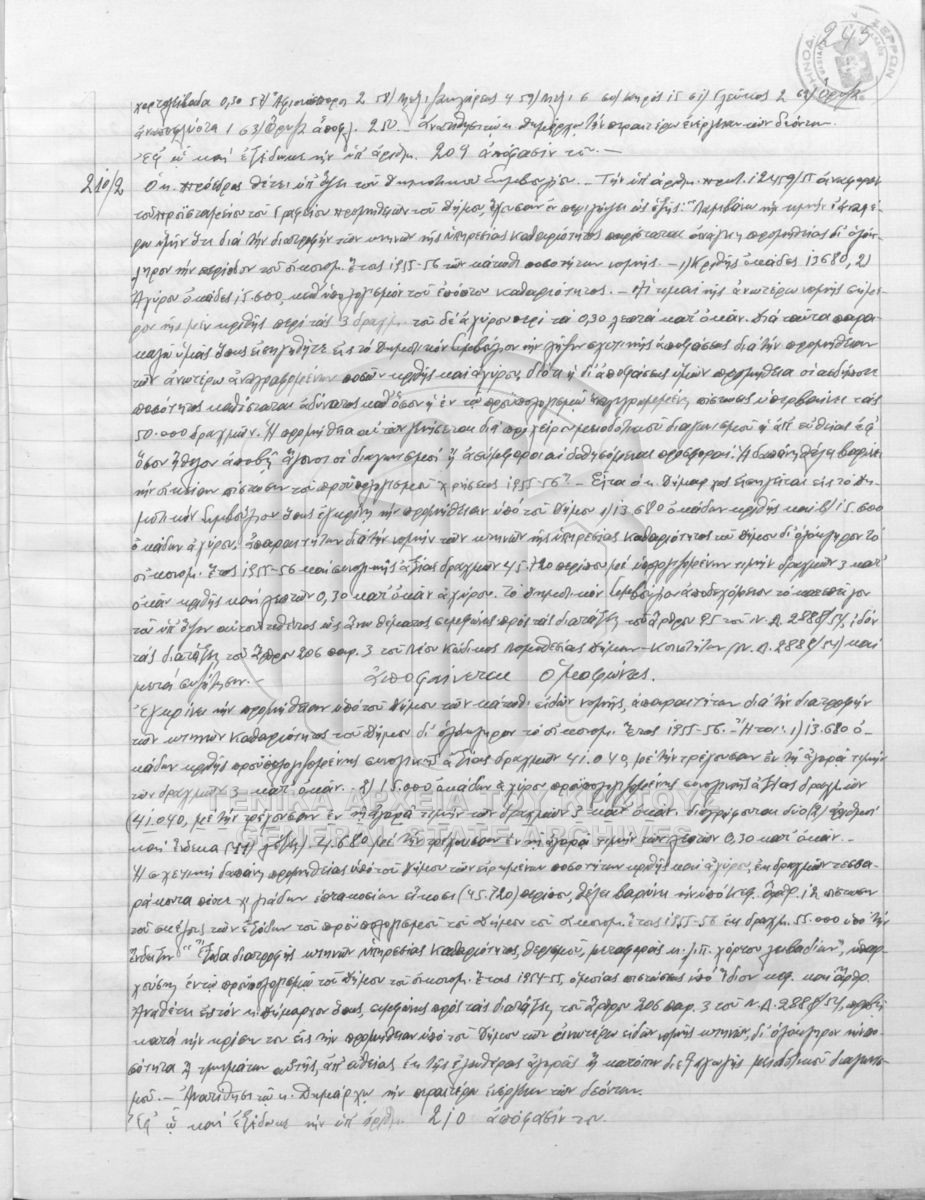 245
χορτολίβαδα 0,30 57) Ἀφιονόσπορος 2 58) Μέλι ζακχάρεως 4 59) Μέλι 6 60) κηρός 15 61) Γλεῦκος 2 62) Ὄρυζα
ἀναποφλοίωτα 1 63) Ὄρυζα ἀποφλ. 2.50. Ἀνατίθησι τῷ κ. Δημάρχῳ τὴν περαιτέρω ἐνέργειαν τῶν δεόντων.
Ἐφ' ᾧ καὶ ἐξέδωκε τὴν ὑπ' ἀριθμ. 209 ἀπόφασίν του.—
210/2 Ὁ κ. πρόεδρος θέτει ὑπ' ὄψει τοῦ Δημοτικοῦ Συμβουλίου.— Τὴν ὑπ' ἀριθμ. πρωτ. 12459/55 ἀναφοράν
τοῦ προϊσταμένου τοῦ Γραφείου προμηθειῶν τοῦ Δήμου, ἔχουσαν ἐν περιλήψει ὡς ἑξῆς: "Λαμβάνω τὴν τιμὴν ν' ἀναφέ-
ρω ὑμῖν ὅτι διὰ τὴν διατροφὴν τῶν κτηνῶν τῆς ὑπηρεσίας καθαριότητος παρίσταται ἀνάγκη προμηθείας δι' ὁλόκ-
ληρον τὴν περίοδον τοῦ οἰκονομ. ἔτους 1955-56 τῶν κάτωθι ποσοτήτων νομῆς.— 1) Κριθῆς ὀκάδες 13680, 2)
Ἀχύρου ὀκάδες 15.600, καθ' ὑπολογισμὸν τοῦ ἐπόπτου καθαριότητος.— Αἱ τιμαὶ τῆς ἀνωτέρω νομῆς σήμε-
ρον τῆς μὲν κριθῆς περὶ τὰς 3 δραχμ. τοῦ δὲ ἀχύρου περὶ τὰ 0,30 λεπτὰ κατ' ὀκᾶν. Διὰ ταῦτα παρα-
καλῶ ὑμᾶς ὅπως εἰσηγηθῆτε εἰς τὸ Δημοτικὸν Συμβούλιον τὴν λῆψιν σχετικῆς ἀποφάσεως διὰ τὴν προμήθειαν
τῶν ἀνωτέρω ἀναγραφομένων ποσῶν κριθῆς καὶ ἀχύρου, διότι ἡ δι' ἀποφάσεως ὑμῶν προμήθεια οἱασδήποτε
ποσότητος καθίσταται ἀδύνατος καθ' ὅσον ἡ ἐν τῷ προϋπολογισμῷ ἀναγεγραμμένη πίστωσις ὑπερβαίνει τὰς
50.000 δραχμῶν. Ἡ προμήθεια αὐτῶν γενήσεται διὰ προχείρου μειοδοτικοῦ διαγωνισμοῦ ἢ ἀπ' εὐθείας ἐφ'
ὅσον ἤθελον ἀποβῆ ἄγονοι οἱ διαγωνισμοὶ ἢ ἀσύμφοροι αἱ δοθησόμεναι προσφοραί. Ἡ δαπάνη θέλει βαρύνει
τὴν οἰκείαν πίστωσιν τοῦ προϋπολογισμοῦ χρήσεως 1955-56".— Εἶτα ὁ κ. Δήμαρχος εἰσηγεῖται εἰς τὸ Δη-
μοτικὸν Συμβούλιον ὅπως ἐγκρίνῃ τὴν προμήθειαν ὑπὸ τοῦ Δήμου 1) 13.680 ὀκάδων κριθῆς καὶ 2) 15.600
ὀκάδων ἀχύρου, ἀπαραιτήτων διὰ τὴν νομὴν τῶν κτηνῶν τῆς ὑπηρεσίας καθαριότητος τοῦ Δήμου δι' ὁλόκληρον τὸ
οἰκονομ. ἔτος 1955-56 καὶ συνολικῆς ἀξίας δραχμῶν 45.720 περίπου μὲ ὑπολογιζομένην τιμὴν δραχμῶν 3 κατ'
ὀκᾶν κριθῆς καὶ λεπτῶν 0,30 κατ' ὀκᾶν ἀχύρου. Τὸ Δημοτικὸν Συμβούλιον ἀποδεχόμενον τὸ κατεπεῖγον
τοῦ ὑπ' ὄψιν αὐτοῦ τεθέντος ὡς ἄνω θέματος συμφώνως πρὸς τὰς διατάξεις τοῦ ἄρθρου 95 τοῦ Ν.Δ. 2888/54, ἰδὸν
τὰς διατάξεις τοῦ ἄρθρου 206 παρ. 3 τοῦ Νέου Κώδικος Νομοθεσίας Δήμων—Κοινοτήτων (Ν.Δ. 2888/54) καὶ
μετὰ συζήτησιν.— Ἀποφαίνεται ὁμοφώνως.
Ἐγκρίνει τὴν προμήθειαν ὑπὸ τοῦ Δήμου τῶν κάτωθι εἰδῶν νομῆς, ἀπαραιτήτων διὰ τὴν διατροφὴν
τῶν κτηνῶν καθαριότητος τοῦ Δήμου δι' ὁλόκληρον τὸ οἰκονομ. ἔτος 1955-56.— Ἤτοι: 1) 13.680 ὀ-
κάδων κριθῆς προϋπολογιζομένης συνολικῆς ἀξίας δραχμῶν 41.040, μὲ τὴν τρέχουσαν ἐν τῇ ἀγορᾷ τιμὴν
τῶν δραχμῶν 3 κατ' ὀκᾶν.- 2) 15.000 ὀκάδων ἀχύρου προϋπολογιζομένης συνολικῆς ἀξίας δραχμῶν
(41.040, με τὴν τρέχουσαν ἐν τῇ ἀγορᾷ τιμὴν τῶν δραχμῶν 3 κατ' ὀκᾶν. διαγράφονται δύο (2) ἀριθμοὶ
καὶ ἕνδεκα (11) λέξεις). 4.680 μὲ τὴν τρέχουσαν ἐν τῇ ἀγορᾷ τιμὴν τῶν λεπτῶν 0,30 κατ' ὀκᾶν.—
Ἡ σχετικὴ δαπάνη προμηθείας ὑπὸ τοῦ Δήμου τῶν εἰρημένων ποσοτήτων κριθῆς καὶ ἀχύρου, ἐκ δραχμῶν τεσσα-
ράκοντα πέντε χιλιάδων ἑπτακοσίων εἴκοσι (45.720) περίπου, θέλει βαρύνει τὴν ὑπὸ Κεφ. ἄρθρ. 12 πίστωσιν
τοῦ σκέλους τῶν ἐξόδων τοῦ προϋπολογισμοῦ τοῦ Δήμου τοῦ οἰκονομ. ἔτους 1955-56 ἐκ δραχμ. 55.000 ὑπὸ τὴν
ἔνδειξιν "Ἔξοδα διατροφῆς κτηνῶν ὑπηρεσίας καθαριότητος, θερισμοῦ, μεταφορᾶς κ.λ.π. χόρτου λειβαδίων", ὑπαρ-
χούσης ἐν τῷ προϋπολογισμῷ τοῦ Δήμου τοῦ οἰκονομ. ἔτους 1954-55, ὁμοίας πιστώσεως ὑπὸ ἴδιον κεφ. καὶ ἄρθρ.
Ἀναθέτει εἰς τὸν κ. Δήμαρχον ὅπως, συμφώνως πρὸς τὰς διατάξεις τοῦ ἄρθρου 206 παρ. 3 τοῦ Ν.Δ. 2888/54, προβῇ
κατὰ τὴν κρίσιν του εἰς τὴν προμήθειαν ὑπὸ τοῦ Δήμου τῶν ἀνωτέρω εἰδῶν νομῆς κτηνῶν, δι' ὁλόκληρον τὴν πο-
σότητα ἢ τμημάτων αὐτῆς, ἀπ' εὐθείας ἐκ τῆς ἐλευθέρας ἀγορᾶς ἢ κατόπιν διεξαγωγῆς μειοδοτικοῦ διαγωνι-
σμοῦ.— Ἀνατίθησι τῷ κ. Δημάρχῳ τὴν περαιτέρω ἐνέργειαν τῶν δεόντων.
Ἐφ' ᾧ καὶ ἐξέδωκε τὴν ὑπ' ἀριθμ. 210 ἀπόφασίν του.
ΓΕΝΙΚΑ ΑΡΧΕΙΑ ΤΟΥ ΚΡΑΤΟΥΣ
GENERAL STATE ARCHIVES